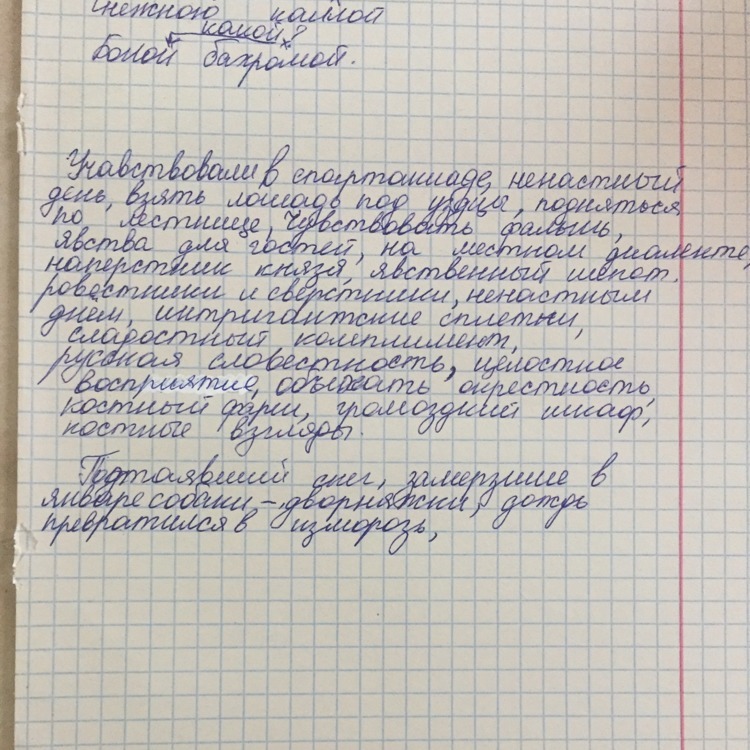 нежною каймой
какой?
Белой бахромой.
Учавствовали в спартакиаде, ненастный
день, взять лошадь под уздцы, подняться
по лестнице, чувствовать фальшь,
явства для гостей, на местном диалекте,
наперстник князя, явственный шепот.
ровестники и сверстники, ненастным
днём, интригантские сплетни,
сладостный комплимент,
русская словестность, целостное
восприятие, объезжать окрестность,
костный фарш, громоздкий шкаф,
постные взгляды.
Подтаявший снег, замерзшие в
январе собаки - дворняжки, дождь
превратился в изморозь,